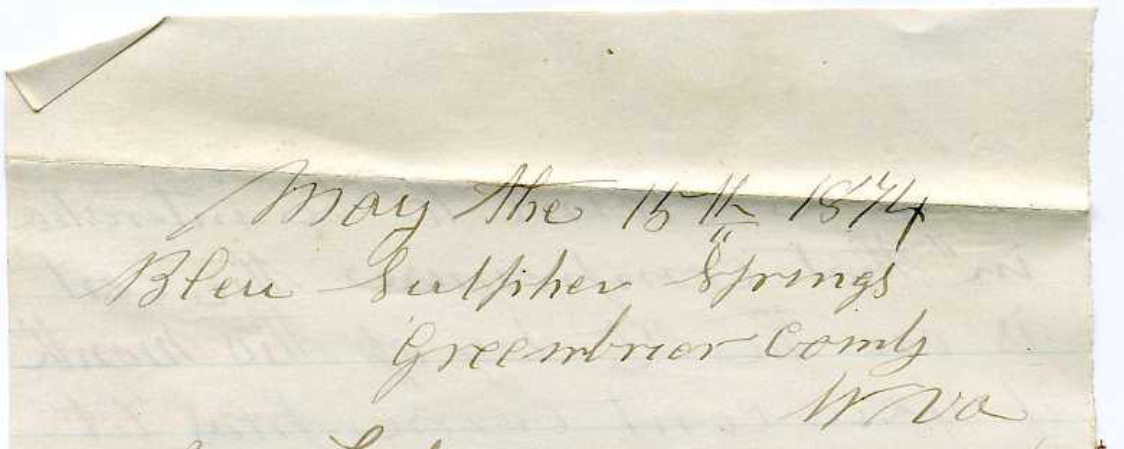 May the 15th 1874
Bleu Sulpher Springs
Greenbrier County
W Va